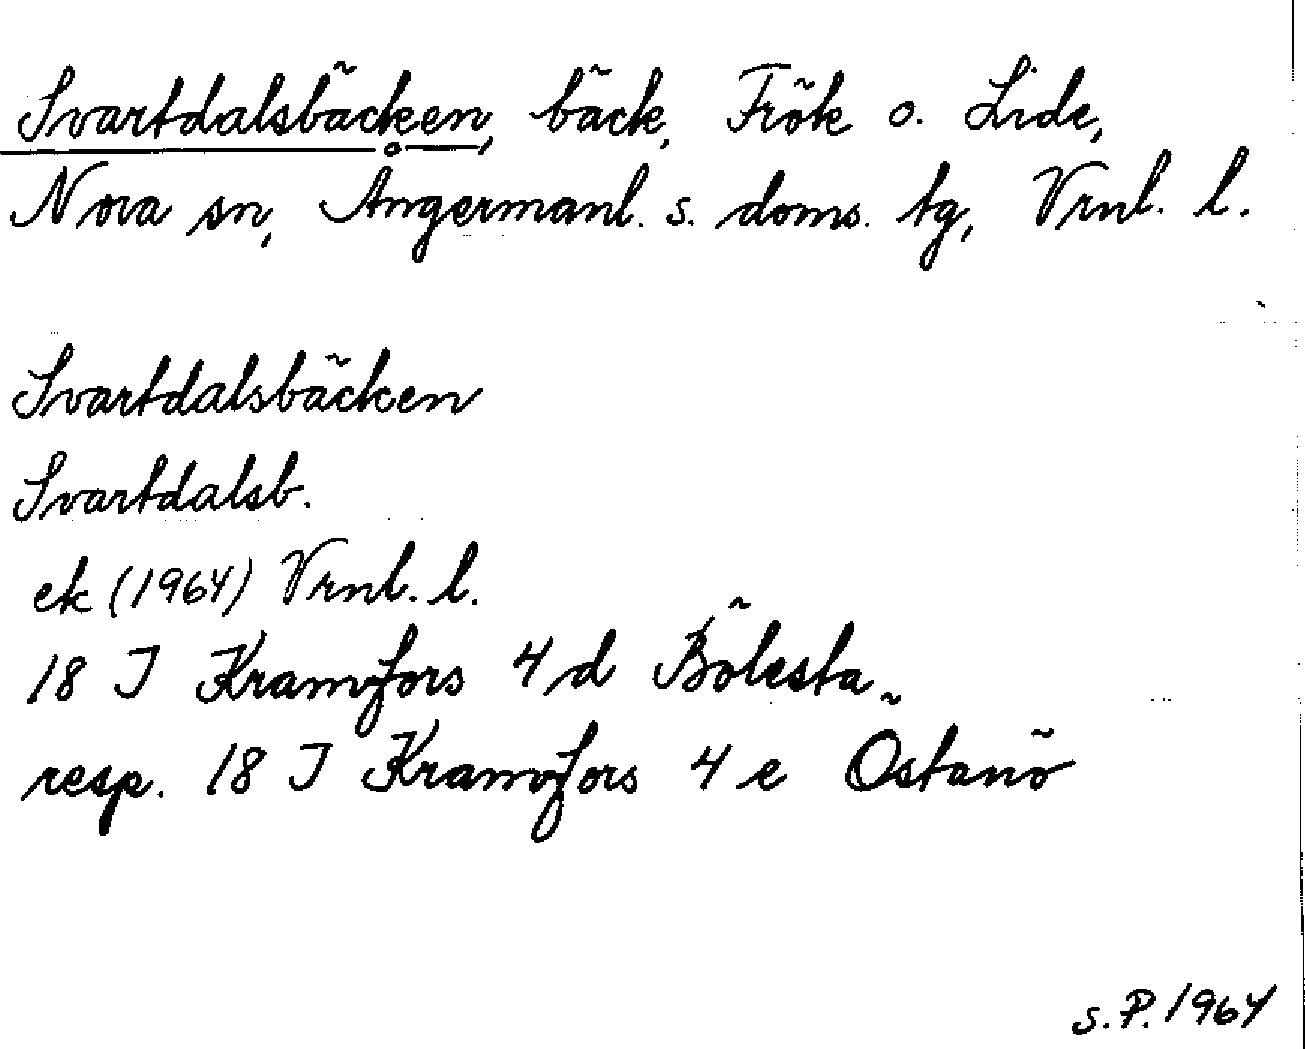 Svartdalsbäcken, bäck, Frök o. Lide,
Nora sn, Ångermanl. s. doms. tg, Vrnl. l.
Svartdalsbäcken
Svartdalsb.
ek (1964) Vrnl. l.
18 I Kramfors 4 d Bölesta
resp. 18 I Kramfors 4 e Östanö
S.P. 1964